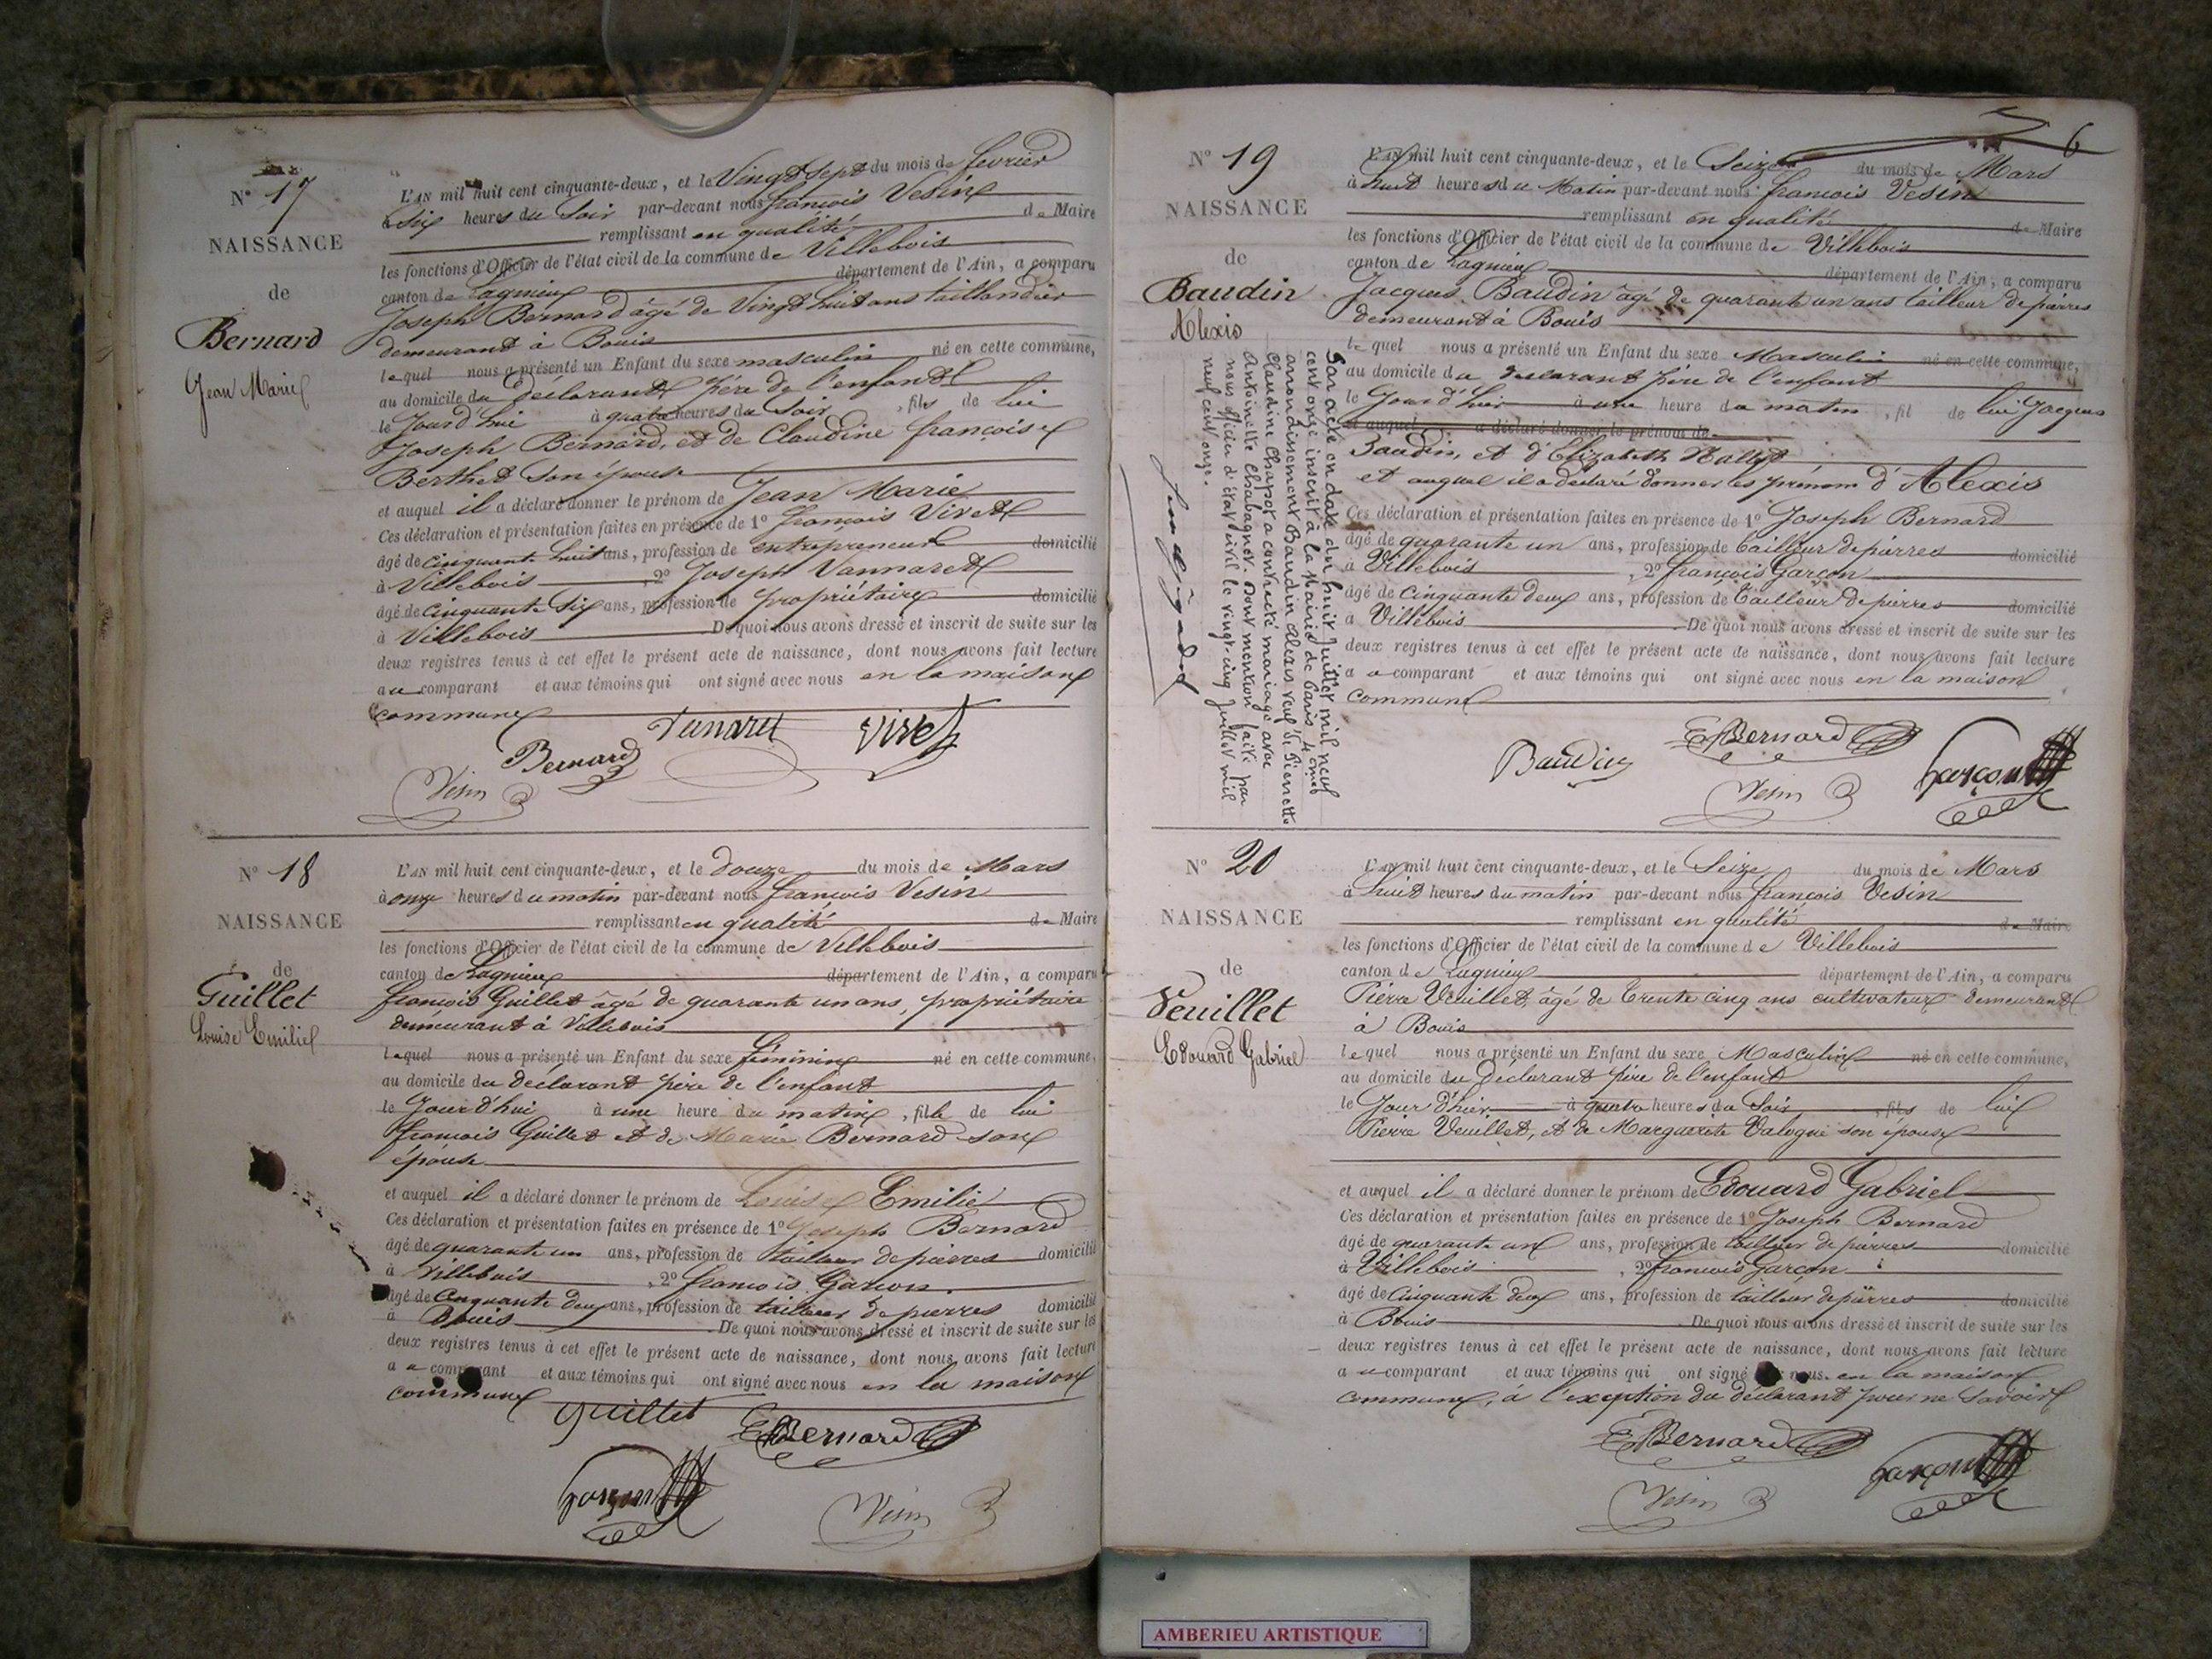 N° 17
NAISSANCE
de
Bernard
Jean Marie
L'AN mil huit cent cinquante-deux, et le Vingt sept du mois de fevrier
à Six heures du Soir par-devant nous françois Vesin
remplissant en qualité de Maire
les fonctions d'Officier de l'état civil de la commune de Villebois
canton de Lagnieu département de l'Ain, a comparu
Joseph Bernard âgé de Vingt huit ans taillandier
demeurant à Bouis
lequel nous a présenté un Enfant du sexe masculin né en cette commune,
au domicile du Déclarant père de l'enfant
le Jourd'hui à quatre heures du Soir, fils de lui
Joseph Bernard, et de Claudine françoise
Berthet son épouse
et auquel il a déclaré donner le prénom de Jean Marie
Ces déclaration et présentation faites en présence de 1° françois Viret
âgé de cinquante huit ans, profession de entrepreneur domicilié
à Villebois, 2° Joseph Vannaret
âgé de cinquante six ans, profession de propriétaire domicilié
à Villebois De quoi nous avons dressé et inscrit de suite sur les
deux registres tenus à cet effet le présent acte de naissance, dont nous avons fait lecture
au comparant et aux témoins qui ont signé avec nous en la maison
commune
Bernard Viret
Vesin
N° 18
NAISSANCE
de
Guillet
Louise Emilie
L'AN mil huit cent cinquante-deux, et le douze du mois de Mars
à onze heures du matin par-devant nous françois Vesin
remplissant en qualité de Maire
les fonctions d'Officier de l'état civil de la commune de Villebois
canton de Lagnieu département de l'Ain, a comparu
françois Guillet âgé de quarante un ans, propriétaire
demeurant à Villebois
lequel nous a présenté un Enfant du sexe féminin né en cette commune,
au domicile du déclarant père de l'enfant
le Jourd'hui à une heure du matin, fille de lui
françois Guillet et de Marie Bernard son
épouse
et auquel il a déclaré donner le prénom de Louise Emilie
Ces déclaration et présentation faites en présence de 1° Joseph Bernard
âgé de quarante un ans, profession de tailleur de pierres domicilié
à Villebois, 2° françois Garçon
âgé de Cinquante deux ans, profession de tailleur de pierres domicilié
à Bouis De quoi nous avons dressé et inscrit de suite sur les
deux registres tenus à cet effet le présent acte de naissance, dont nous avons fait lecture
au comparant et aux témoins qui ont signé avec nous en la maison
commune
Guillet Bernard
garçon Vesin
6
N° 19
NAISSANCE
de
Baudin
Alexis
Par acte en date du huit Juillet mil neuf
cent onze inscrit à la Mairie de Paris 4 ème
arrondissement Baudin Alexis veuf de Pierrette
Claudine Chapot a contracté mariage avec
Antoinette Chabagnot. Dont mention faite par
nous officier d'état civil le vingt-cinq Juillet mil
neuf cent onze.
L'AN mil huit cent cinquante-deux, et le Seize du mois de Mars
à huit heures du Matin par-devant nous françois Vesin
remplissant en qualité de Maire
les fonctions d'Officier de l'état civil de la commune de Villebois
canton de Lagnieu département de l'Ain, a comparu
Jacques Baudin âgé de quarante un ans tailleur de pierres
demeurant à Bouis
lequel nous a présenté un Enfant du sexe Masculin né en cette commune,
au domicile du declarant père de l'enfant
le Jourd'hui à une heure du matin, fil de lui Jacques
et auquel a déclaré donner le prénom de
Baudin, et d'Elizabeth
et auquel il a déclaré donner les prénom d'Alexis
Ces déclaration et présentation faites en présence de 1° Joseph Bernard
âgé de quarante un ans, profession de tailleur de pierres domicilié
à Villebois, 2° françois Garçon
âgé de cinquante deux ans, profession de tailleur de pierres domicilié
à Villebois De quoi nous avons dressé et inscrit de suite sur les
deux registres tenus à cet effet le présent acte de naissance, dont nous avons fait lecture
au comparant et aux témoins qui ont signé avec nous en la maison
commune
Baudin Bernard
Vesin garçon
N° 20
NAISSANCE
de
Veuillet
Edouard Gabriel
L'AN mil huit cent cinquante-deux, et le Seize du mois de Mars
à huit heures du matin par-devant nous françois Vesin
remplissant en qualité de Maire
les fonctions d'Officier de l'état civil de la commune de Villebois
canton de Lagnieu département de l'Ain, a comparu
Pierre Veuillet, âgé de trente cinq ans cultivateur demeurant
à Bouis
lequel nous a présenté un Enfant du sexe Masculin né en cette commune,
au domicile du Déclarant père de l'enfant
le Jour d'hier à quatre heures du Soir, fils de lui
Pierre Veuillet, et de Marguerite Valogne son épouse
et auquel il a déclaré donner le prénom de Edouard Gabriel
Ces déclaration et présentation faites en présence de 1° Joseph Bernard
âgé de quarante un ans, profession de tailleur de pierres domicilié
à Villebois, 2° françois Garçon
âgé de Cinquante deux ans, profession de tailleur de pierres domicilié
à Bouis De quoi nous avons dressé et inscrit de suite sur les
deux registres tenus à cet effet le présent acte de naissance, dont nous avons fait lecture
au comparant et aux témoins qui ont signé nous en la maison
commune, à l'exception du déclarant pour ne savoir
Bernard
Vesin garçon
AMBERIEU ARTISTIQUE